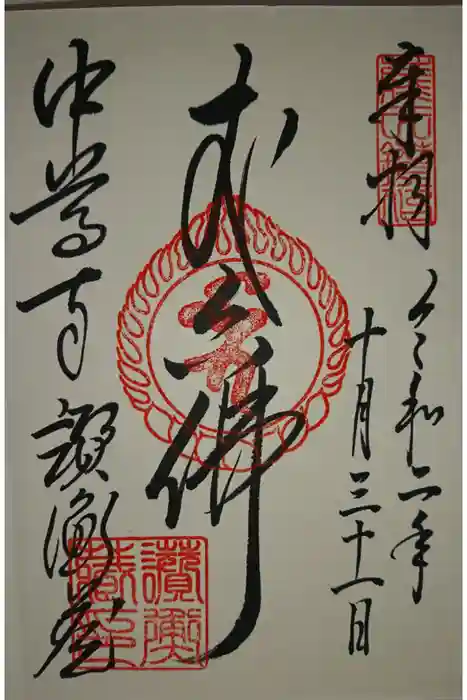 奉拝
令和二年
十月三十一日
丈六佛
中尊寺 讃衡蔵
讃衡
蔵印